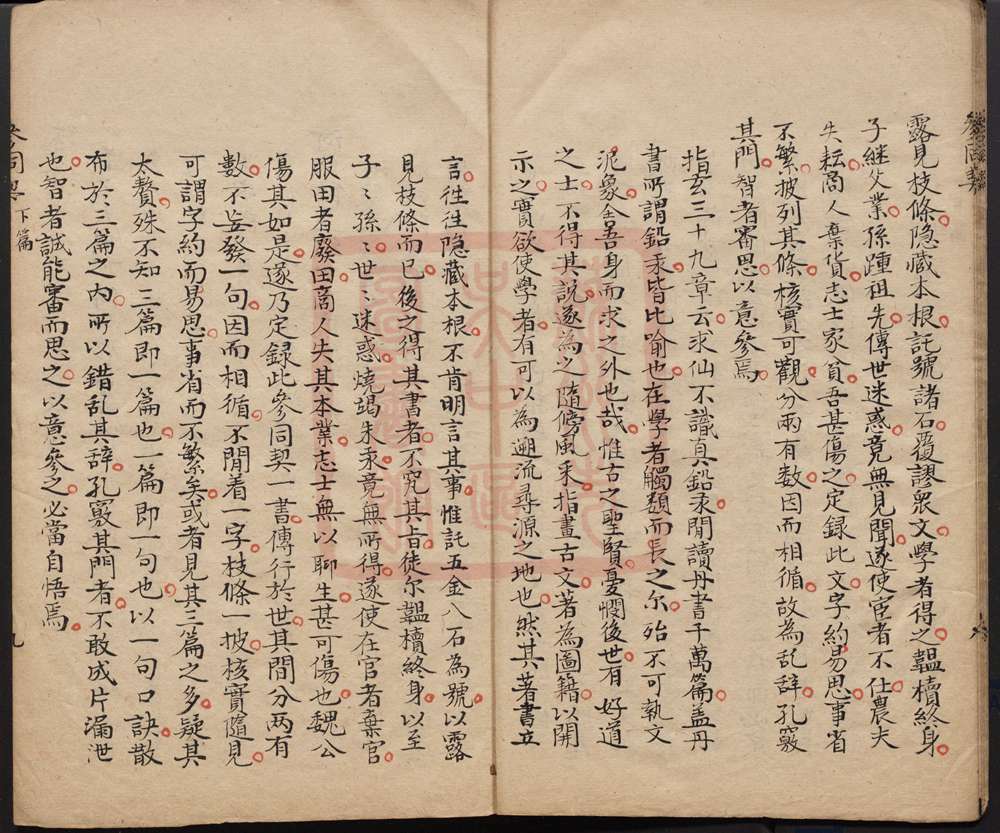 露見枝條隐藏本根託號諸石覆謬衆文學者得之韞櫝終身
子継父業孫踵祖先傳世迷惑竟無見聞遂使宦者不仕農夫
失耘商人棄貨志士家貧吾甚傷之定録此文字約易思事省
不繁披列其條核實可觀分兩有数因而相循故為乱辞孔竅
其門智者審思以意參焉
指玄三十九章云求仙不識真鉛汞閒讀丹書千萬篇盖丹
書所謂鉛汞皆比喻也在學者觸類而長之尔殆不可執文
泥象舍吾身而求之外也哉惟古之聖賢憂憫後世有好道
之士不得其說遂為之隨傍風采指畫古文著為圖籍以開
示之實欲使學者有可以為遡流尋源之地也然其著書立
言徃徃隐藏本根不肯明言其事惟託五金八石為號以露
見枝條而已後之得其書者不究其㫖徒尔韞櫝終身以至
子〻孫〻世〻迷惑燒竭朱汞竟無所得遂使在官者棄官
服田者廢田啇人失其本業志士無以聊生甚可傷也魏公
傷其如是遂乃定録此參同契一書傳行於世其間分两有
數不妄發一句因而相循不閒着一字枝條一披核實隨見
可謂字約而易思事省而不繁矣或者見其三篇之多疑其
太贅殊不知三篇即一篇也一篇即一句也以一句口訣散
布於三篇之内所以錯乱其辞孔竅其門者不敢成片漏泄
也智者誠能審而思之以意參之必當自悟焉
参同契 下篇 九